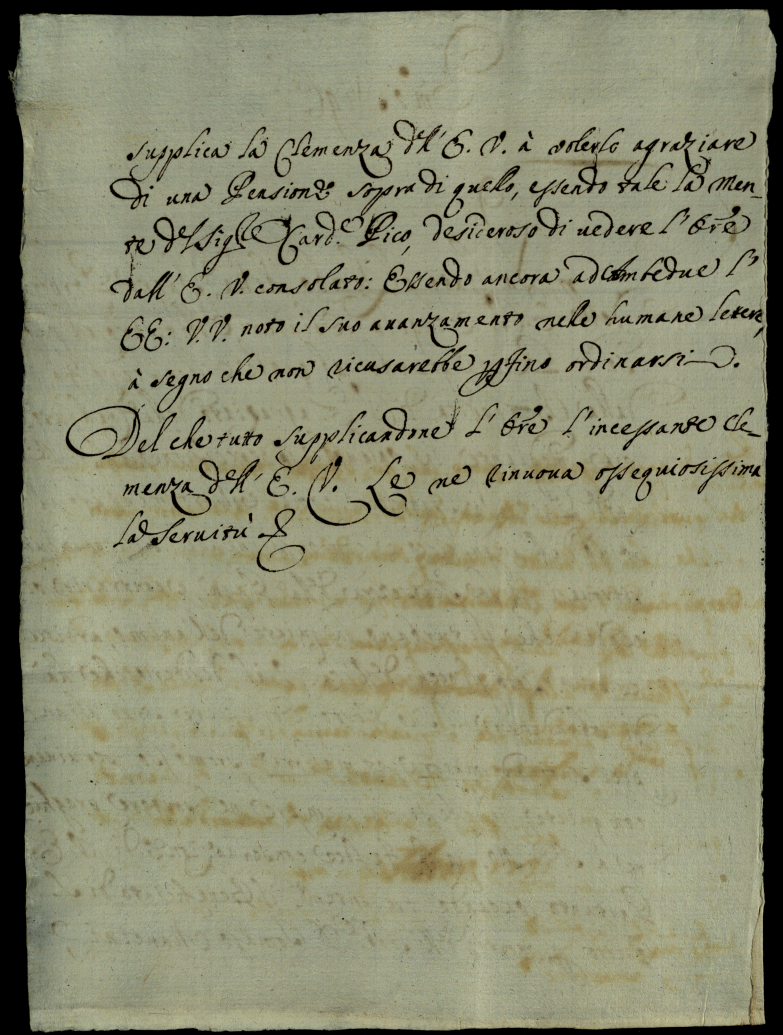 supplica la Clemenza dell' E. V. à volerlo agraziare
di una Pensione sopra di quello, essendo tale la men-
te del Sig.re Card.e Pico, desideroso di vedere l' Ore
dall' E. V. consolato: Essendo ancora ad ambedue l'
EE: V.V. noto il suo avanzamento nelle humane lettere,
à segno che non ricusarebbe fino ordinarsi.
Del che tutto supplicandone l' Ore l'incessante Cle-
menza dell' E. V. Le ne rinuova ossequiosissima
la Servitù